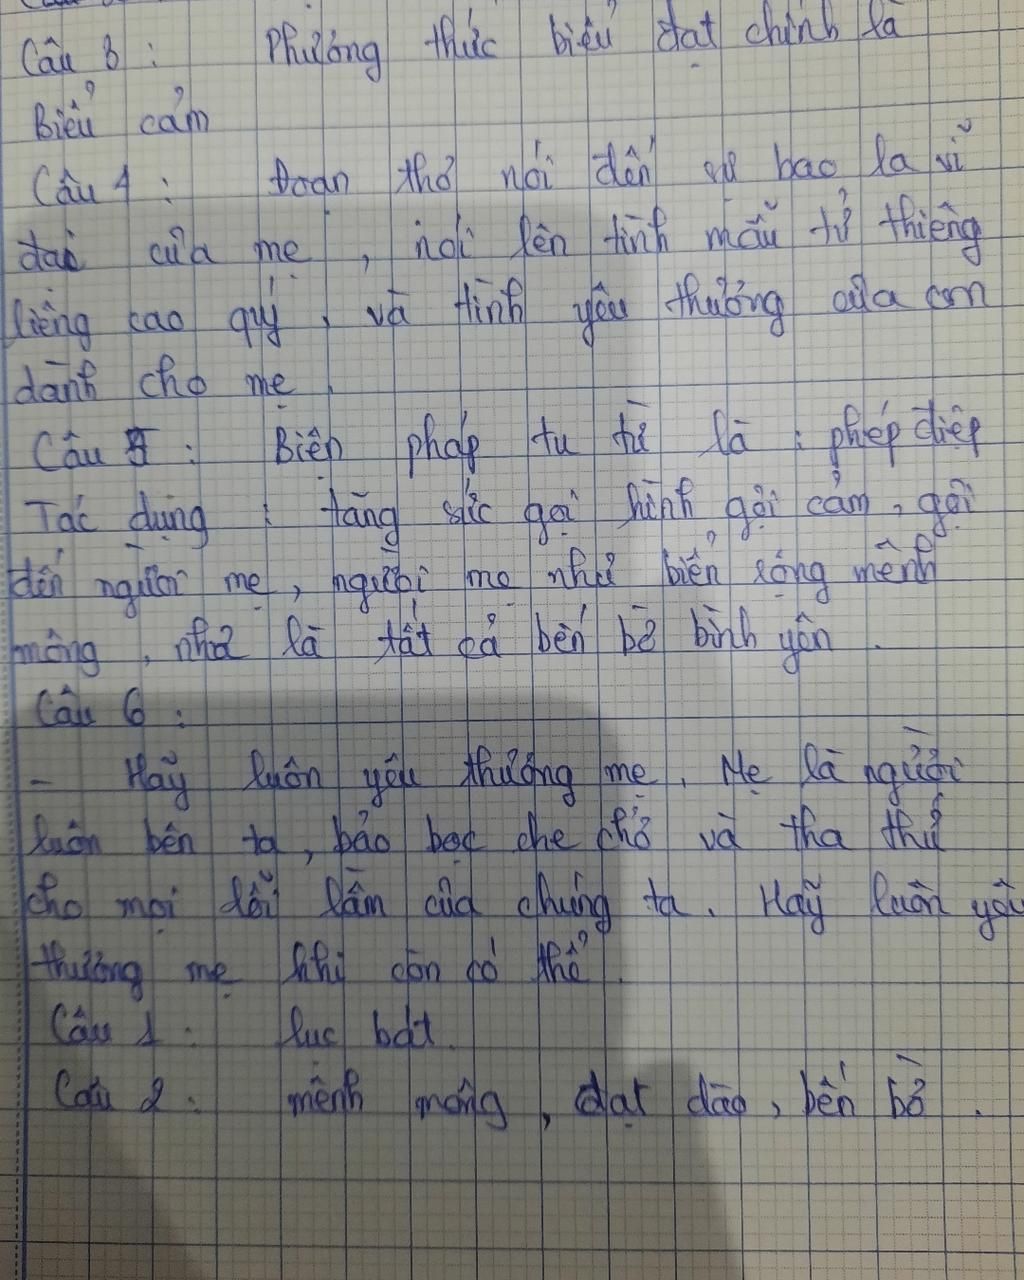 Câu 3 : Phương thức biểu đạt chính là
Biểu cảm
Câu 4 : Đoạn thơ nói đến sự bao la vĩ
đại của mẹ , nói lên tình mẫu tử thiêng
liêng cao quý , và tình yêu thương của con
dành cho mẹ .
Câu 5 : Biện pháp tu từ là : phép điệp
Tác dụng : tăng sức gợi hình gợi cảm , gợi
đến người mẹ , người mẹ như biển rộng mênh
mông , như là tất cả bến bờ bình yên .
Câu 6 :
- Hãy luôn yêu thương mẹ . Mẹ là người
luôn bên ta , bảo bọc che chở và tha thứ
cho mọi lỗi lầm của chúng ta . Hãy luôn yêu
thương mẹ khi còn có thể .
Câu 1 : lục bát .
Câu 2 : mênh mông , dạt dào , bến bờ .